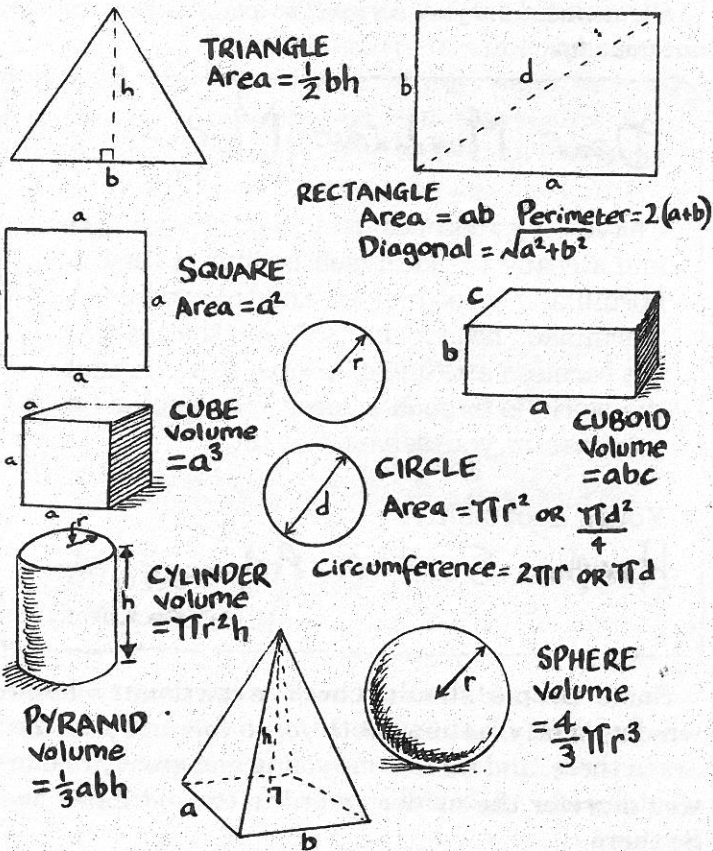 TRIANGLE
Area = ½ bh
h
b
d
b
a
RECTANGLE
Area = ab Perimeter = 2(a+b)
Diagonal = √a²+b²
a
a
a
SQUARE
Area = a²
r
c
b
a
CUBOID
Volume
= abc
a
a
a
CUBE
Volume
= a³
d
CIRCLE
Area = πr² OR πd²/4
Circumference = 2πr OR πd
r
h
CYLINDER
Volume
= πr²h
PYRANID
Volume
= ⅓abh
h
a
b
r
SPHERE
Volume
= 4/3 πr³